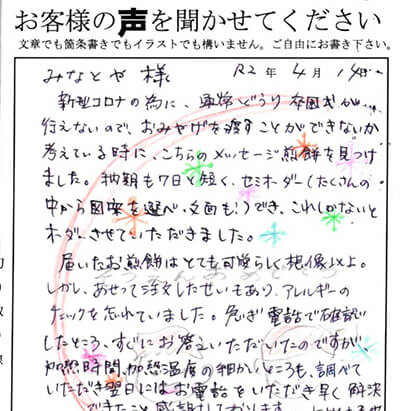 お客様の声を聞かせてください
文章でも箇条書きでもイラストでも構いません。ご自由にお書き下さい。
みなとや 様 R2年 4月 14日
新型コロナの為に、通常どうり 卒園式が
行えないので、おみやげを渡すことができないか
考えている時に、こちらのメッセージ煎餅を見つけ
ました。納期も7日と短く、セミオーダー(たくさんの
中から図案を選べ、文面も!)でき、これしかないと
オーダーさせていただきました。
届いたお煎餅はとても可愛らしく想像以上。
しかし、あせって注文したせいもあり、アレルギーの
チェックを忘れていました。急ぎ電話で確認
したところ、すぐにお答えいただいたのですが、
加熱時間、加熱温度の細かいところも、調べて
いただき翌日にはお電話をいただき早く解決
できたこと感謝しております。